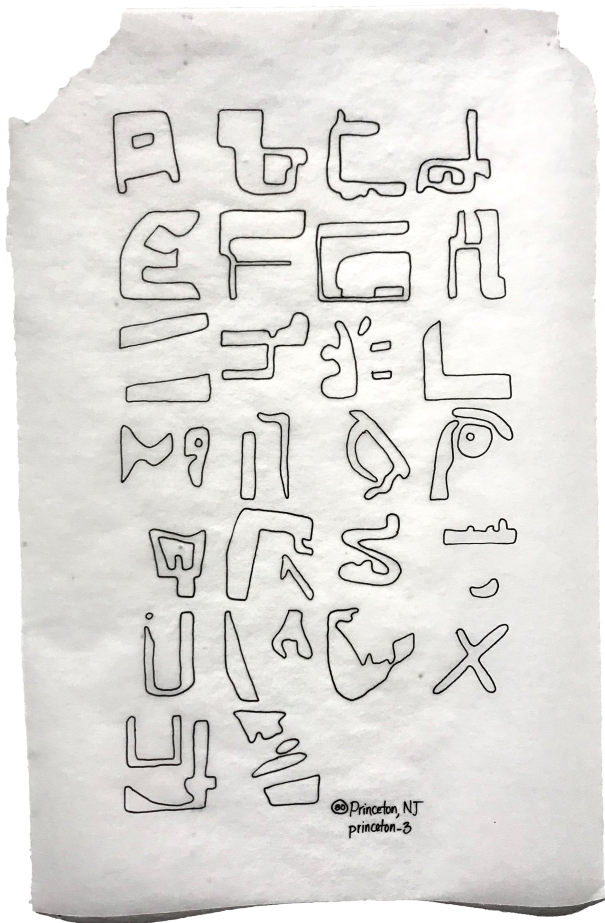 A b C d
E F G H
I J K L
M n O P
Q R S T
U V W X
y Z
80 Princeton, NJ
princeton-3